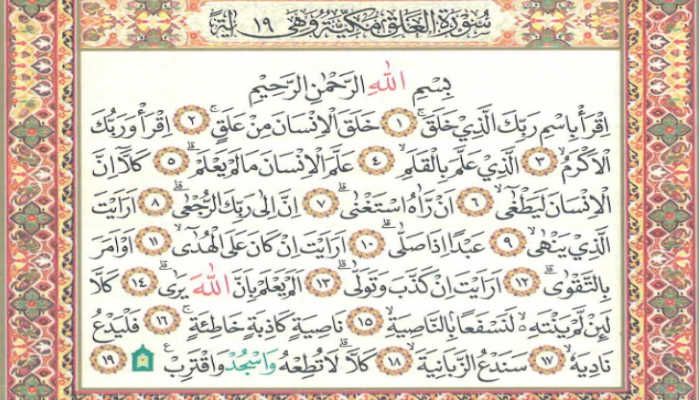 سُورَةُ الْعَلَقِ مَكِّيَّةٌ وَهِيَ ١٩ اٰيَةً
بِسْمِ اللهِ الرَّحْمٰنِ الرَّحِيمِ
اِقْرَأْ بِاسْمِ رَبِّكَ الَّذِي خَلَقَۚ ١ خَلَقَ الْاِنْسَانَ مِنْ عَلَقٍۚ ٢ اِقْرَأْ وَرَبُّكَ
الْاَكْرَمُۙ ٣ اَلَّذِي عَلَّمَ بِالْقَلَمِۙ ٤ عَلَّمَ الْاِنْسَانَ مَا لَمْ يَعْلَمْۜ ٥ كَلَّا اِنَّ
الْاِنْسَانَ لَيَطْغٰىۙ ٦ اَنْ رَاٰهُ اسْتَغْنٰىۜ ٧ اِنَّ اِلٰى رَبِّكَ الرُّجْعٰىۜ ٨ اَرَاَيْتَ
الَّذِي يَنْهٰىۙ ٩ عَبْدًا اِذَا صَلّٰىۜ ١٠ اَرَاَيْتَ اِنْ كَانَ عَلَى الْهُدٰىۙ ١١ اَوْ اَمَرَ
بِالتَّقْوٰىۜ ١٢ اَرَاَيْتَ اِنْ كَذَّبَ وَتَوَلّٰىۜ ١٣ اَلَمْ يَعْلَمْ بِاَنَّ اللهَ يَرٰىۜ ١٤ كَلَّا
لَئِنْ لَمْ يَنْتَهِۙ لَنَسْفَعًا بِالنَّاصِيَةِۙ ١٥ نَاصِيَةٍ كَاذِبَةٍ خَاطِئَةٍۚ ١٦ فَلْيَدْعُ
نَادِيَهُۙ ١٧ سَنَدْعُ الزَّبَانِيَةَۙ ١٨ كَلَّاۜ لَا تُطِعْهُ وَاسْجُدْ وَاقْتَرِبْ ١٩